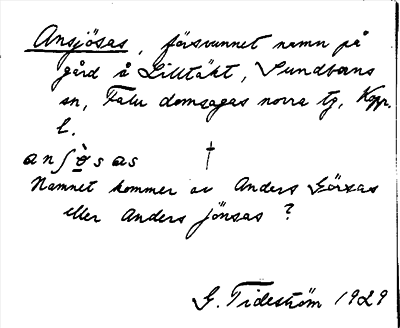 Ansjösas, försvunnet namn på
gård å Lilltäkt, Sundborns
sn, Falu domsagas norra tg, Kopp.
l.
anʃös as †
Namnet kommer av Anders Görsas
eller Anders Jönsas?
G. Tideström 1929